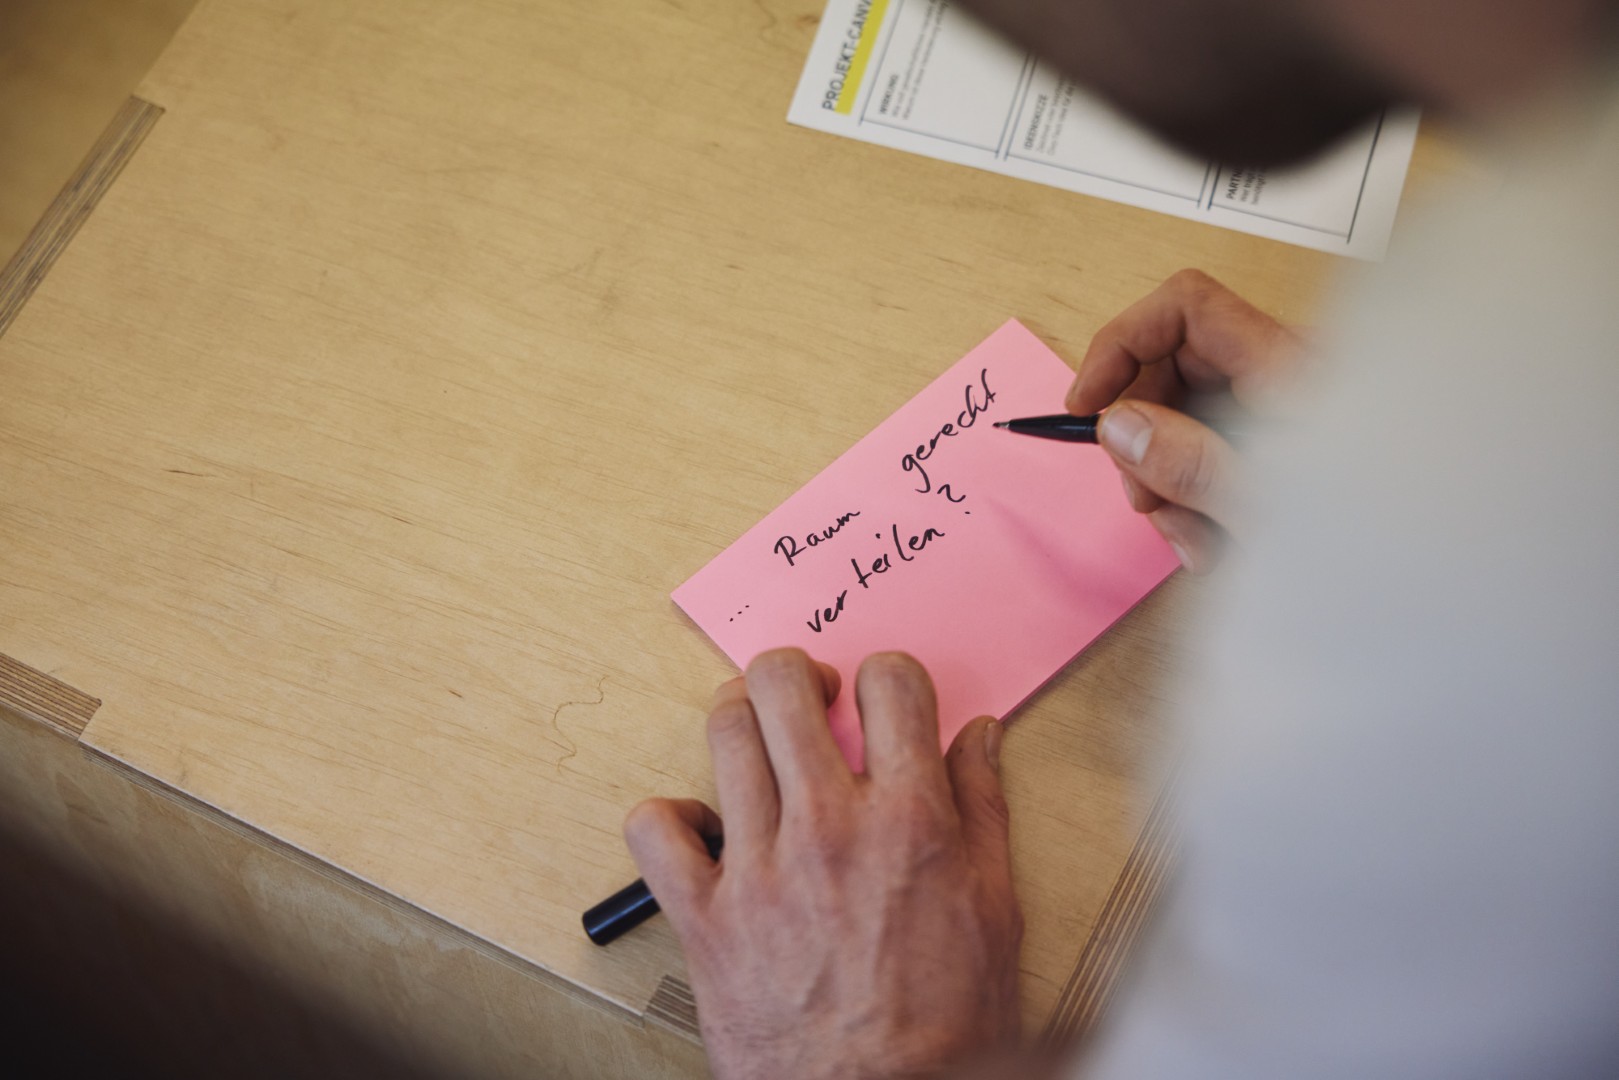 PROJEKT-CANV
WIRKUNG
IDEENSKIZZE
PARTN
... Raum gerecht
verteilen?